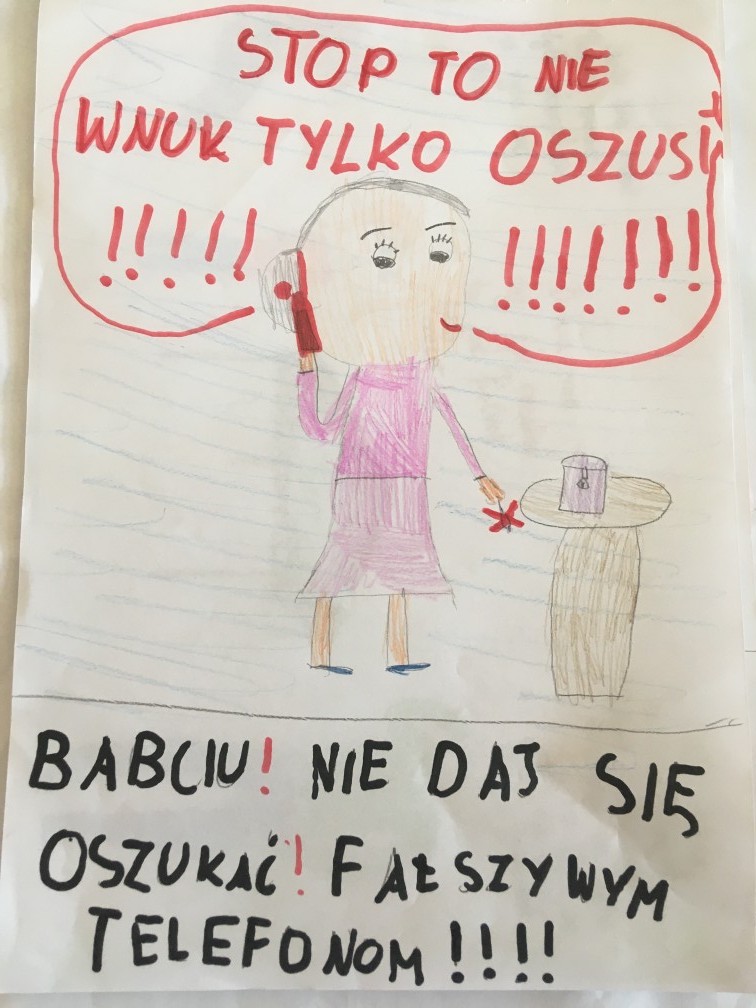 STOP TO NIE
WNUK TYLKO OSZUST
!!!!! !!!!!!!
BABCIU! NIE DAJ SIĘ
OSZUKAĆ! FAŁSZYWYM
TELEFONOM!!!!